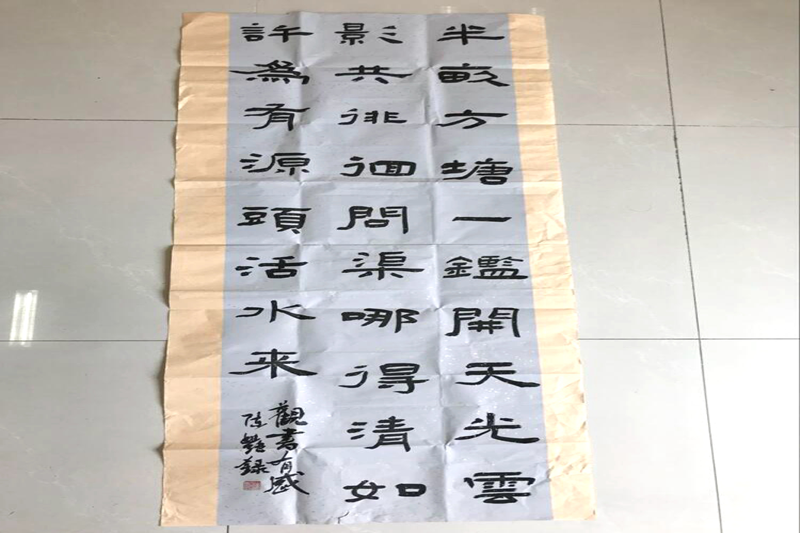 半畝方塘一鑑開天光雲
影共徘徊問渠哪得清如
許為有源頭活水来
觀書有感
陈艷録